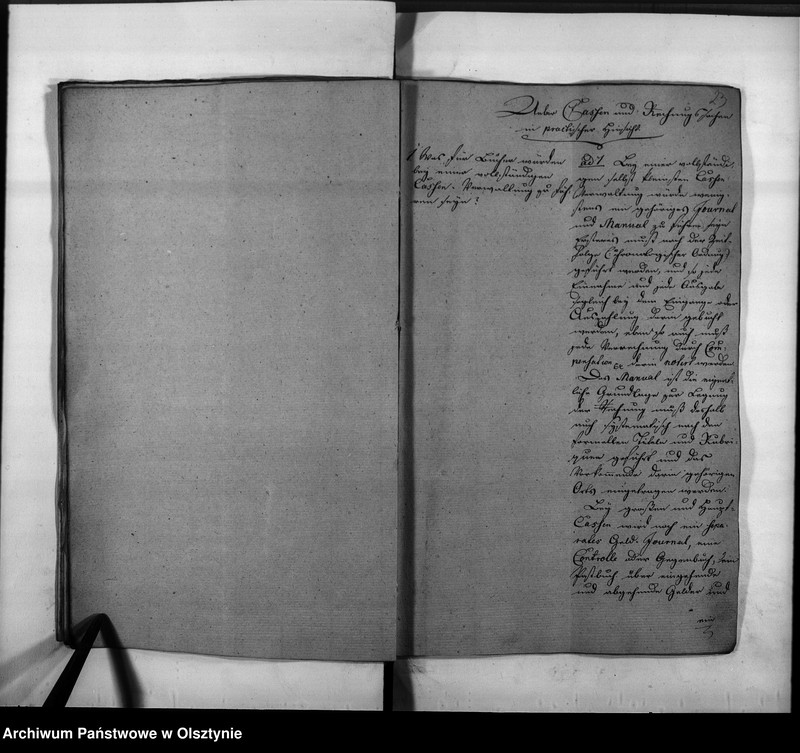 23
Ueber Cassen und Rechnungs Sachen
in practischer Hinsicht.
1. Was für Bücher würden
bey einer vollständigen
Cassen-Verwaltung zu füh
ren seyn?
ad 1. Bey einer vollständi-
gen selbst kleinsten Cassen
Verwaltung würde wenig-
stens ein gehöriges Journal
und Manual zu führen seyn
Ersteres muß nach der Zeit-
folge (chronologischer Ordnung)
geführt werden, und so jede
Einnahme und jede Ausgabe
zugleich bey dem Eingange oder
Auszahlung darin gebucht
werden, eben so auch muß
jede Verrechnung durch Com-
pensation darin notirt werden
Das Manual ist die eigent-
liche Grundlage zur Legung
der Rechnung muß deshalb
auch systematisch nach den
formellen Titeln und Rubri-
quen geführt und das
Vorkommende darin gehörigen
Orts eingetragen werden.
Bey großen und Haupt-
Cassen wird noch ein sepa-
rates Geld-Journal, eine
Controlle oder Gegenbuch, ein
Postbuch über eingehende
und abgehende Gelder und
ein
Archiwum Państwowe w Olsztynie